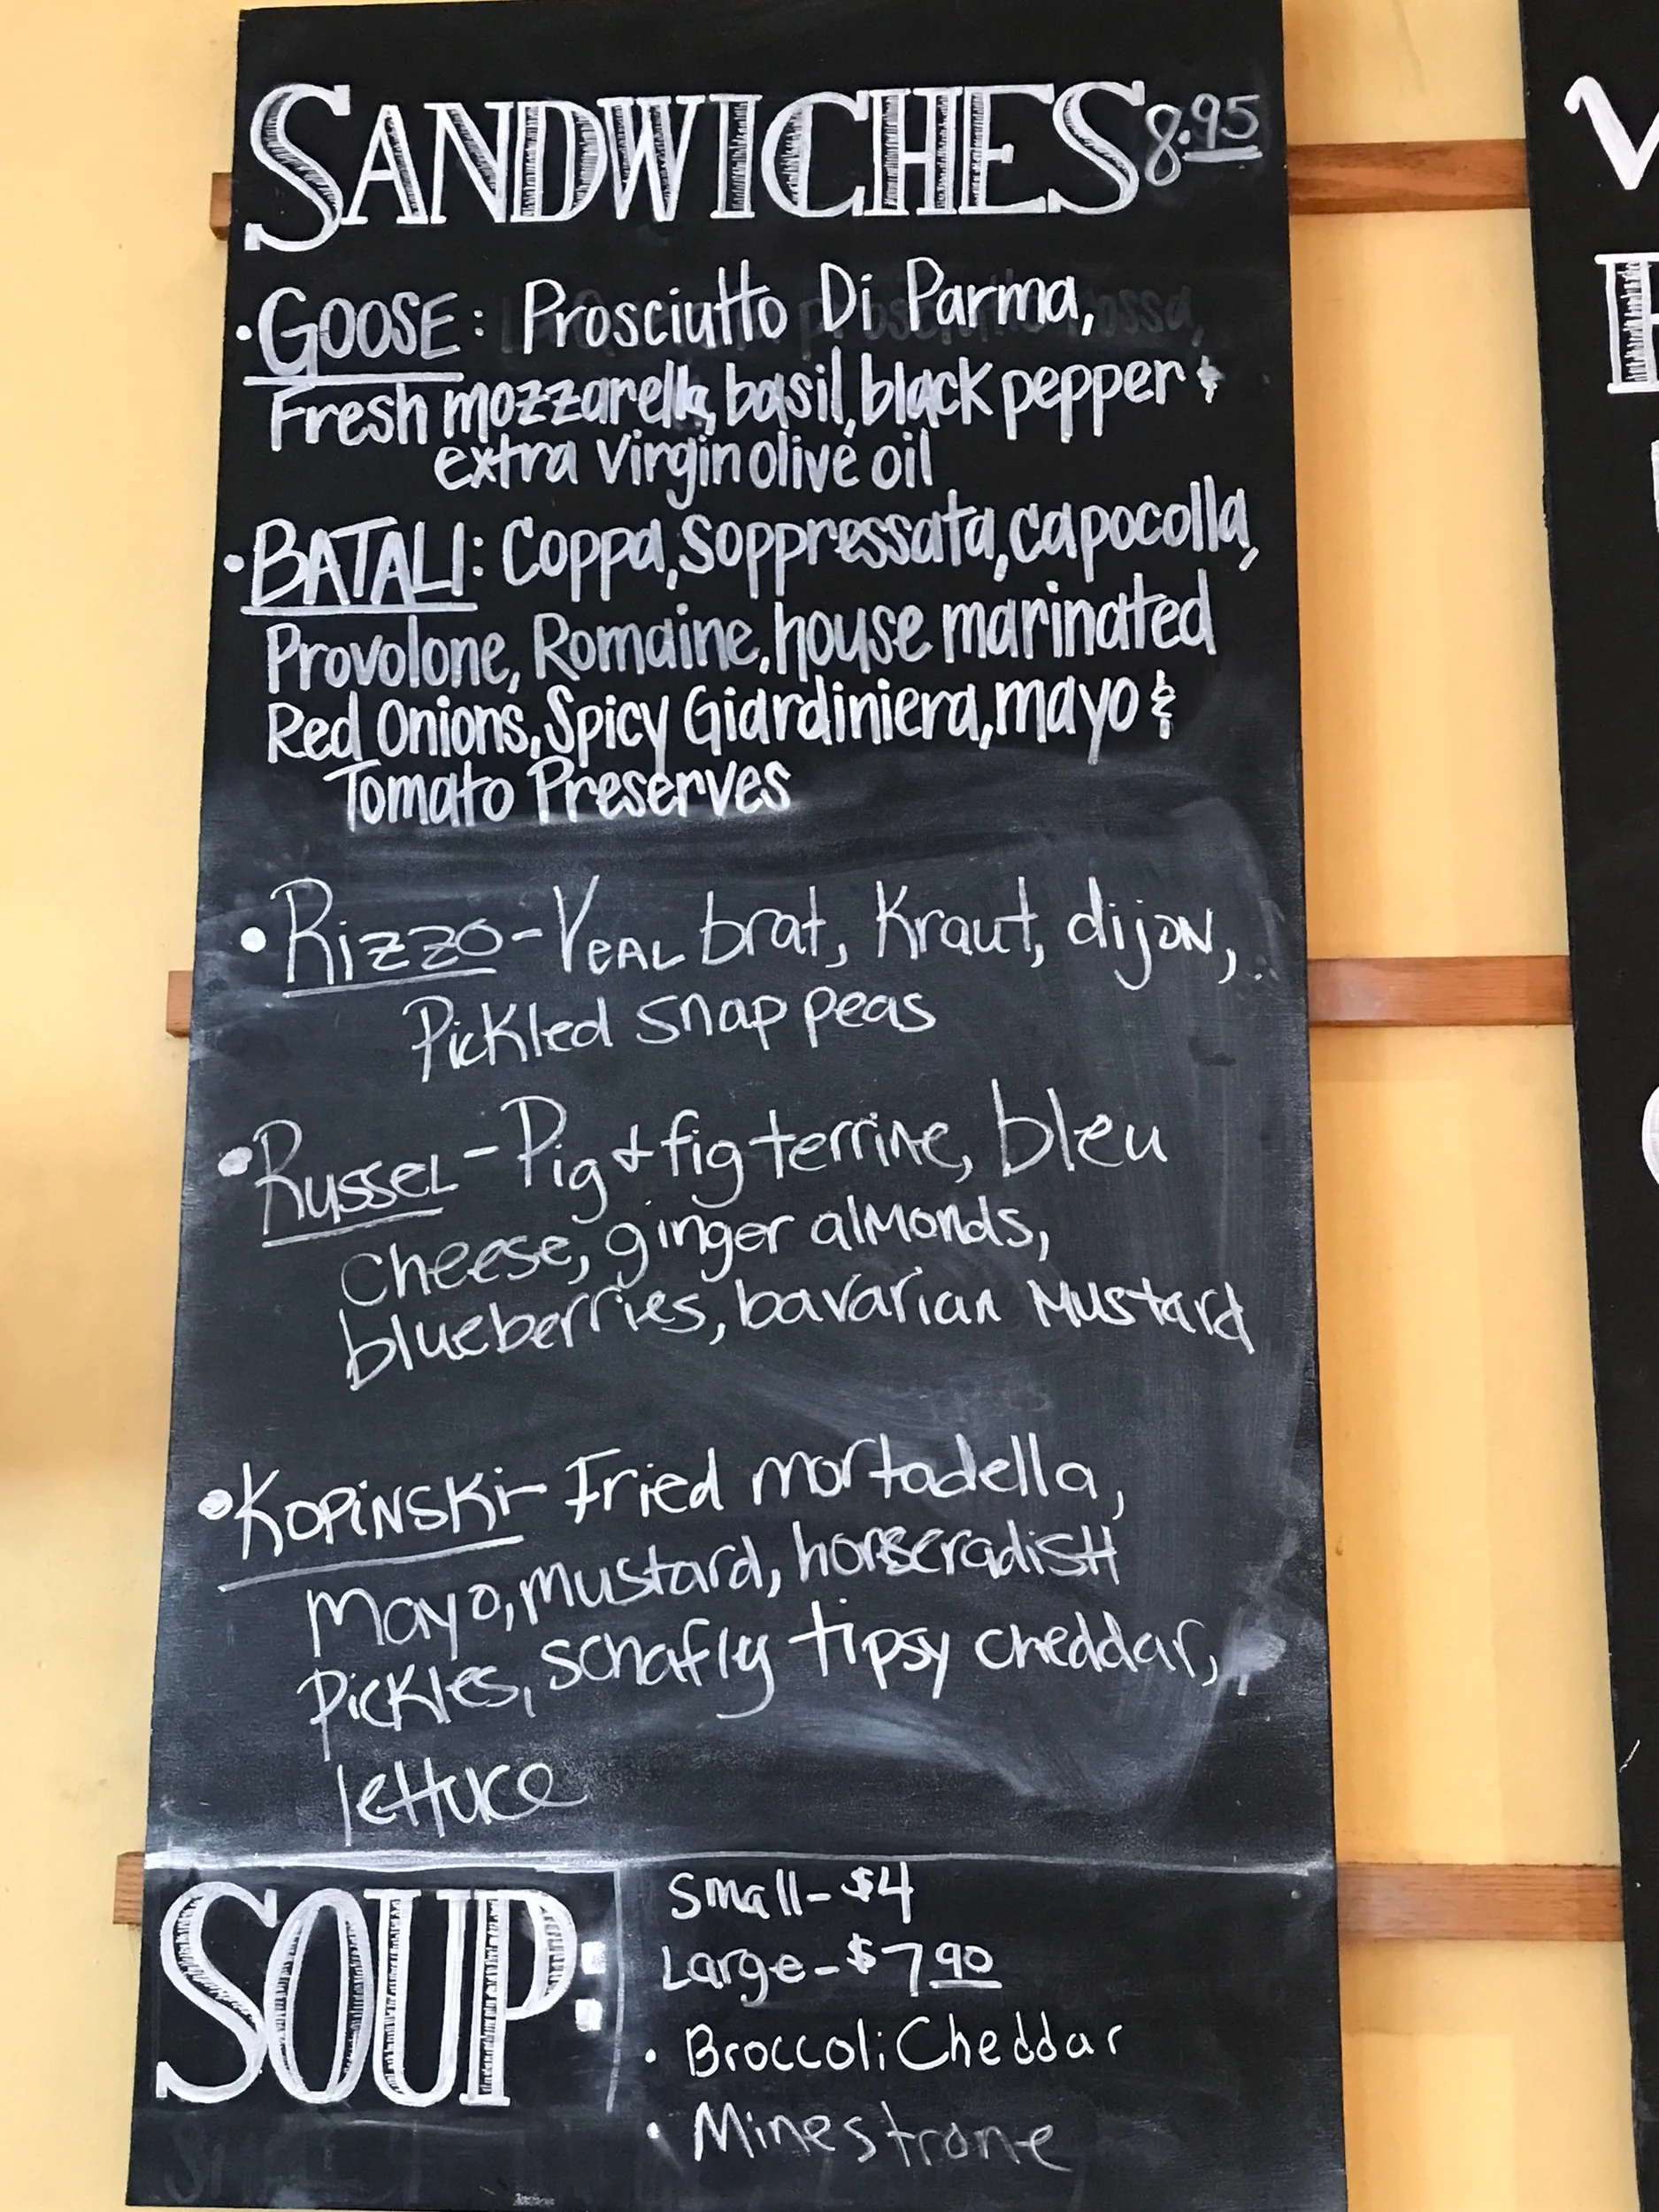 SANDWICHES 8.95
• GOOSE: Prosciutto Di Parma,
Fresh mozzarella, basil, black pepper &
extra virgin olive oil
• BATALI: Coppa, Soppressata, capocolla,
Provolone, Romaine, house marinated
Red Onions, Spicy Giardiniera, mayo &
Tomato Preserves
• Rizzo - Veal brat, Kraut, dijon,
Pickled snap peas
• Russel - Pig & fig terrine, bleu
cheese, ginger almonds,
blueberries, bavarian Mustard
• Kopinski - Fried mortadella,
Mayo, mustard, horseradish
Pickles, schafly tipsy cheddar,
lettuce
SOUP:
Small - $4
Large - $7 90
• Broccoli Cheddar
• Minestrone